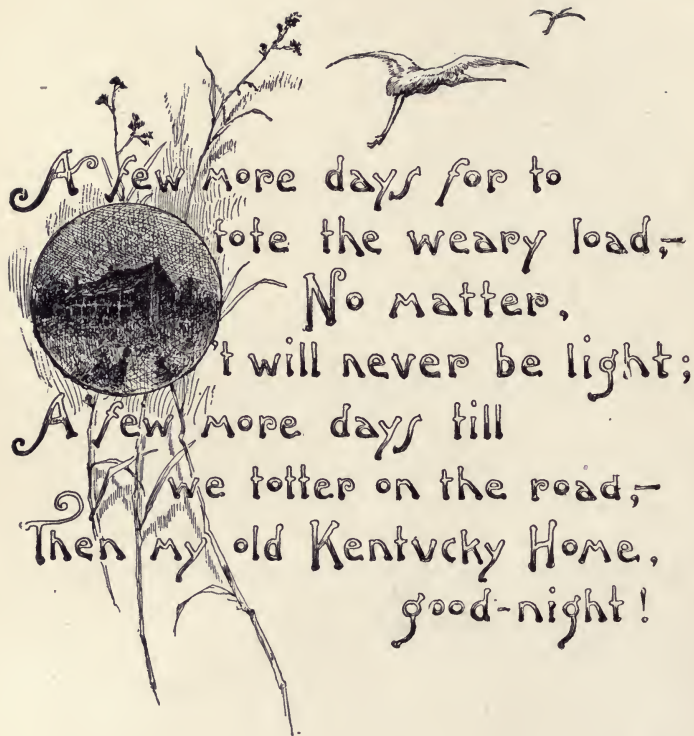 A few more days for to
tote the weary load,-
No matter,
't will never be light;
A few more days till
we totter on the road,-
Then my old Kentvcky Home,
good-night!